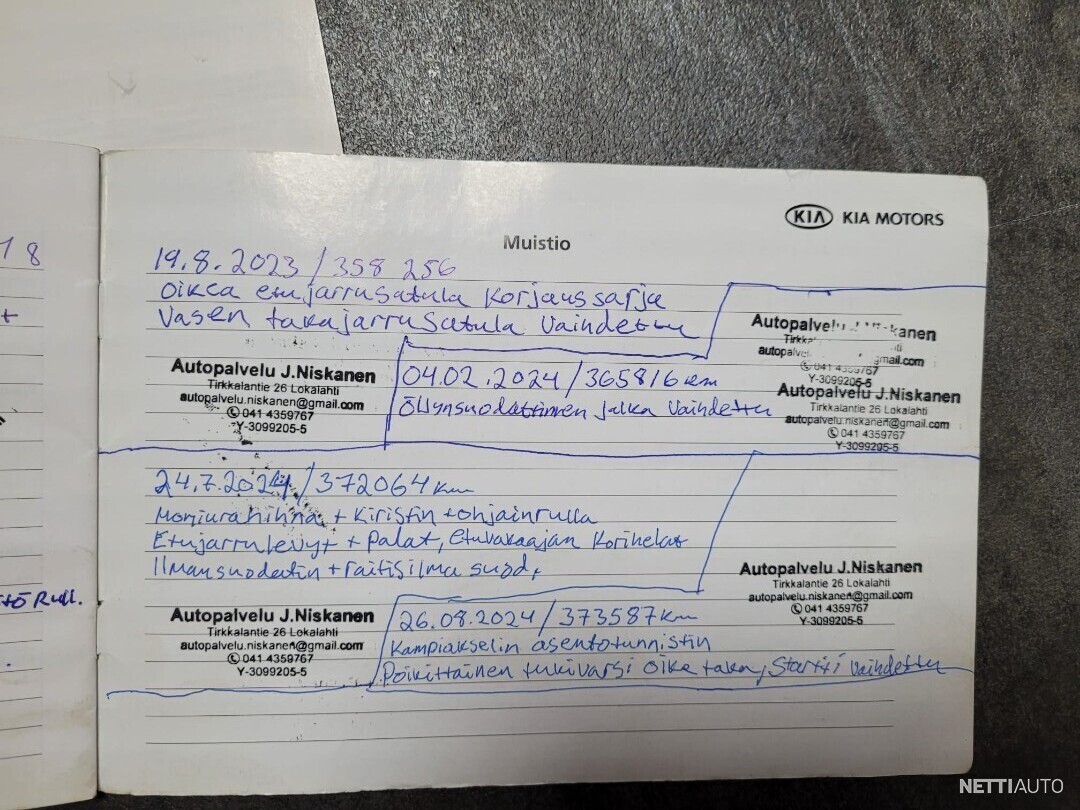 18
t
Rull.
KIA KIA MOTORS
Muistio
19.8.2023/358 256
Oikea etujarrusatula korjaussarja
Vasen takajarrusatula vaihdettu
Autopalvelu J.Niskanen
Tirkkalantie 26 Lokalahti
autopalvelu.niskanen@gmail.com
041 4359767
Y-3099205-5
04.02.2024/365816 km
Öljynsuodattimen jalka vaihdettu
kanen
gmail.com
Y-3099205-5
Autopalvelu J.Niskanen
Tirkkalantie 26 Lokalahti
autopalvelu.niskanen@gmail.com
041 4359767
Y-3099205-5
24.7.2024/372064 km
Moniurahihna + kiristin + ohjainrulla
Etujarrulevyt + palat, etuvakaajan korihelat
Ilmansuodatin + raitisilma suod.
Autopalvelu J.Niskanen
Tirkkalantie 26 Lokalahti
autopalvelu.niskanen@gmail.com
041 4359767
Y-3099205-5
26.08.2024/373587 km
Kampiakselin asentotunnistin
Poikittainen tukivarsi oikea taka, startti vaihdettu
Autopalvelu J.Niskanen
Tirkkalantie 26 Lokalahti
autopalvelu.niskanen@gmail.com
041 4359767
Y-3099205-5
NETTIAUTO